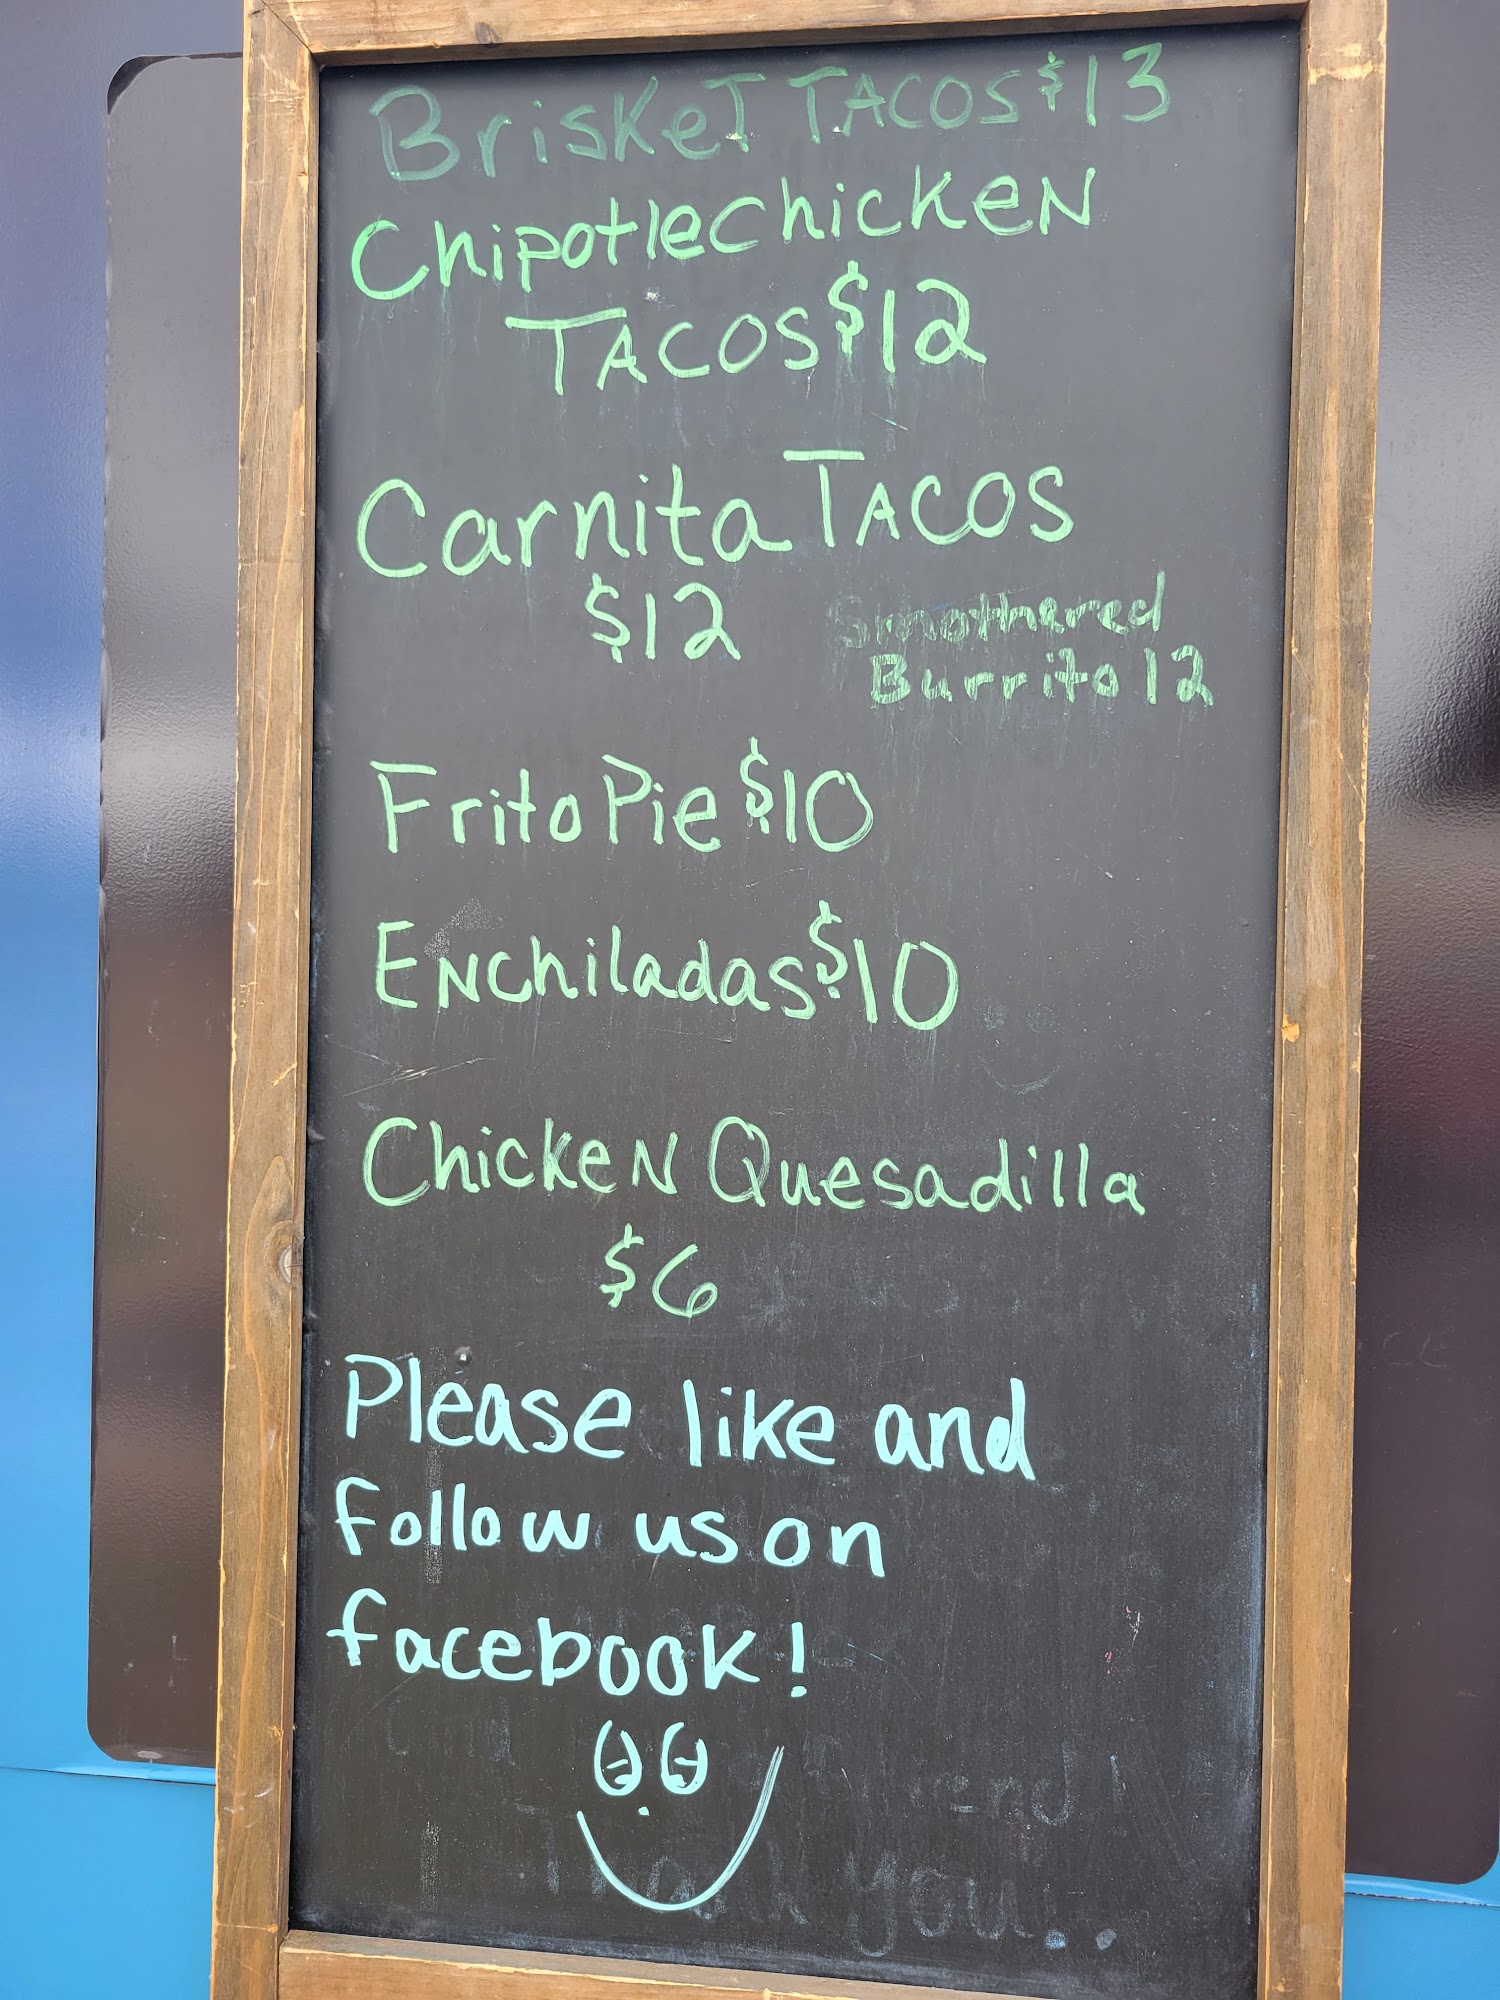 Brisket TACOS $13
Chipotle Chicken
TACOS $12
Carnita TACOS
$12
Smothered
Burrito 12
Frito Pie $10
Enchiladas $10
Chicken Quesadilla
$6
Please like and
follow us on
facebook!
Thank you...